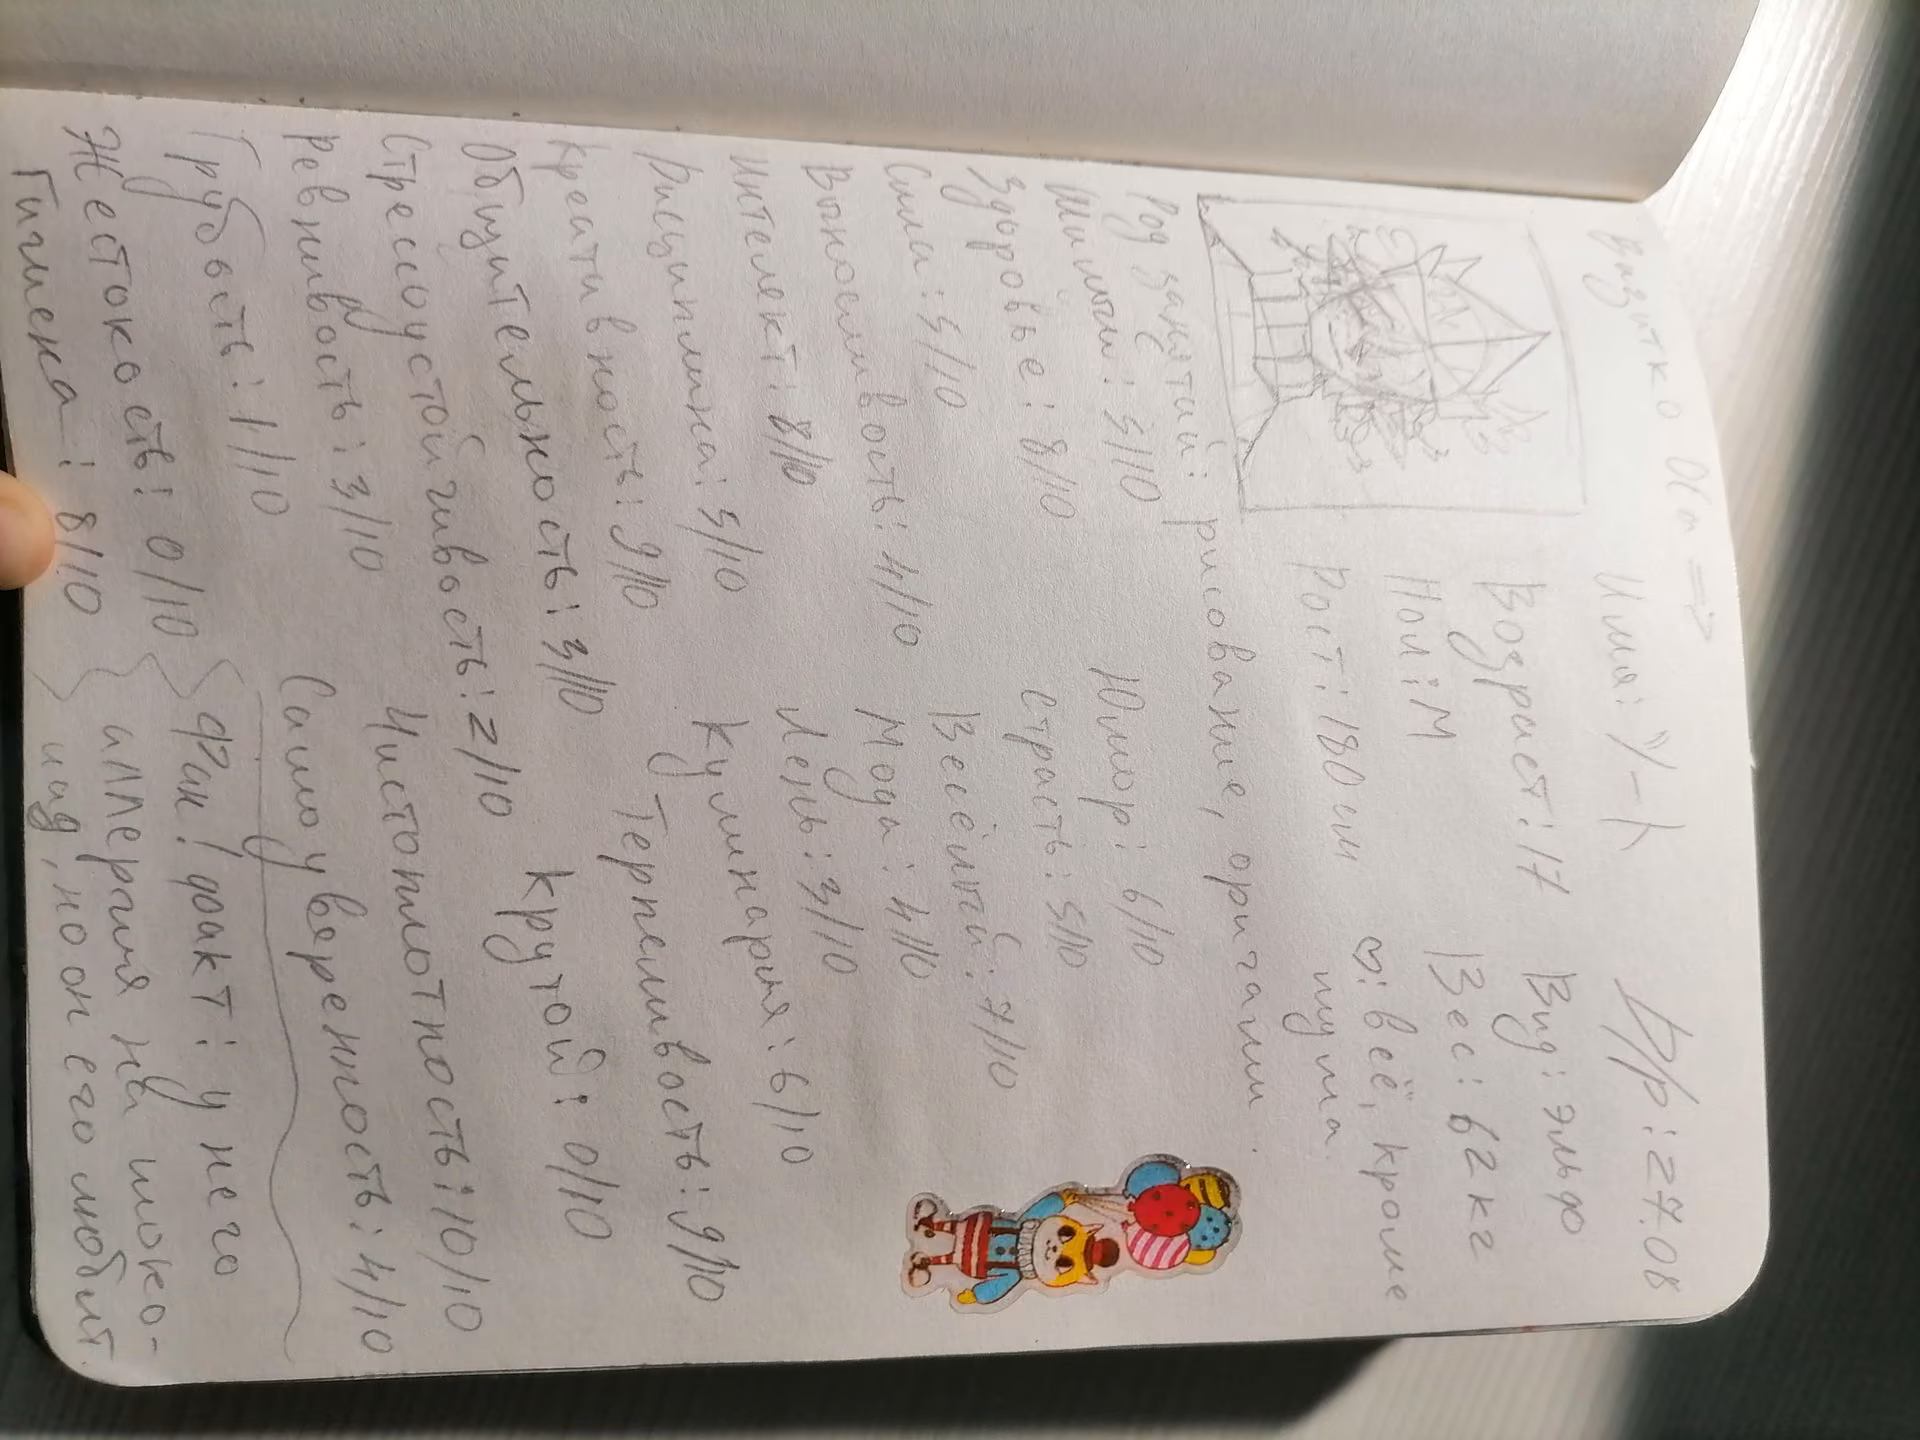 Визитка Ос =>
Имя: У-1 Др: 27.08
Возраст: 17 Вид: эльф
Пол: М Вес: 62 кг
Рост: 180 см ♡: всё, кроме
шума.
Род занятий: рисование, оригами.
Милый: 5/10 Юмор: 6/10
Здоровье: 8/10 Страсть: 5/10
Сила: 5/10 Весёлый: 7/10
Выносливость: 4/10 Мода: 4/10
Интелект: 8/10 Лень: 3/10
Дисциплина: 5/10 Кулинария: 6/10
Креативность: 9/10 Терпеливость: 9/10
Общительность: 3/10 Крутой: 0/10
Стрессоустойчивость: 2/10 Чистоплотность: 10/10
Ревнивость: 3/10 Самоуверенность: 4/10
Грубость: 1/10
Жестокость: 0/10 Фан! факт: у него
Гигиена: 8/10 аллергия на шоко-
лад, но он его любит.